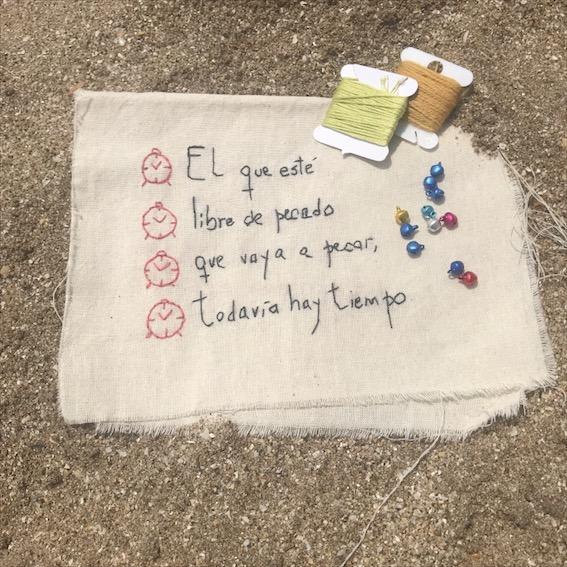 El que esté
libre de pecado
que vaya a pecar,
todavía hay tiempo